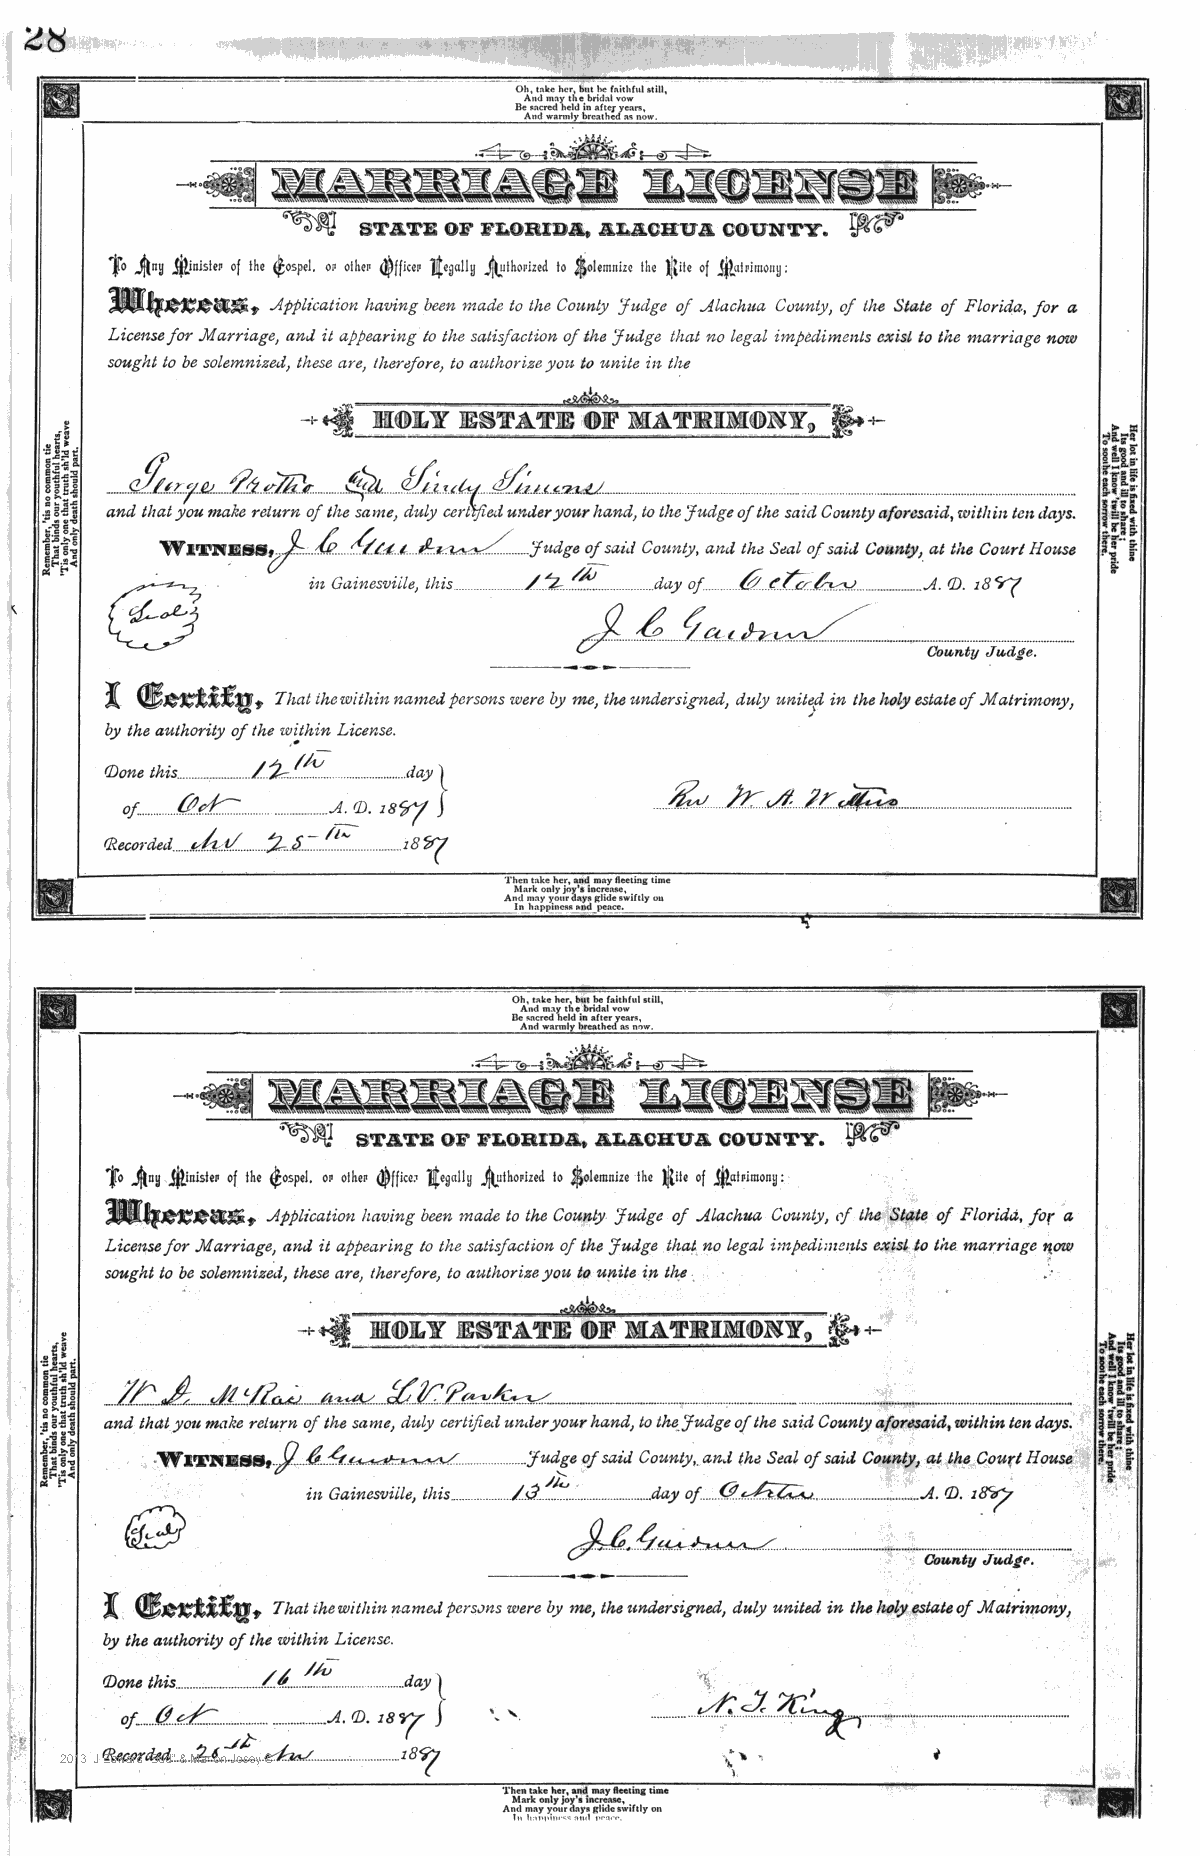 28
Oh, take her, but be faithful still,
And may the bridal vow
Be sacred held in after years,
And warmly breathed as now.
MARRIAGE LICENSE
STATE OF FLORIDA, ALACHUA COUNTY.
To Any Minister of the Gospel, or other Officer Legally Authorized to Solemnize the Rite of Matrimony:
Whereas, Application having been made to the County Judge of Alachua County, of the State of Florida, for a
License for Marriage, and it appearing to the satisfaction of the Judge that no legal impediments exist to the marriage now
sought to be solemnized, these are, therefore, to authorize you to unite in the
HOLY ESTATE OF MATRIMONY,
George Prothro and Sindy Simons
and that you make return of the same, duly certified under your hand, to the Judge of the said County aforesaid, within ten days.
WITNESS, J C Gardner Judge of said County, and the Seal of said County, at the Court House
in Gainesville, this 12th day of October A. D. 1887
Seal
J C Gardner
County Judge.
I Certify, That the within named persons were by me, the undersigned, duly united in the holy estate of Matrimony,
by the authority of the within License.
Done this 12th day
of Oct A. D. 1887
Rev W. A.
Recorded Nov 25th 1887
Remember, 'tis no common tie
That binds our youthful hearts,
'Tis only one that truth sh'ld weave
And only death should part.
Her lot in life is fixed with thine
Its good and ill to share;
And well I know 'twill be her pride
To soothe each sorrow there.
Then take her, and may fleeting time
Mark only joy's increase,
And may your days glide swiftly on
In happiness and peace.
Oh, take her, but be faithful still,
And may the bridal vow
Be sacred held in after years,
And warmly breathed as now.
MARRIAGE LICENSE
STATE OF FLORIDA, ALACHUA COUNTY.
To Any Minister of the Gospel, or other Officer Legally Authorized to Solemnize the Rite of Matrimony:
Whereas, Application having been made to the County Judge of Alachua County, of the State of Florida, for a
License for Marriage, and it appearing to the satisfaction of the Judge that no legal impediments exist to the marriage now
sought to be solemnized, these are, therefore, to authorize you to unite in the
HOLY ESTATE OF MATRIMONY,
W D. McRae and L. V. Parker
and that you make return of the same, duly certified under your hand, to the Judge of the said County aforesaid, within ten days.
WITNESS, J C Gardner Judge of said County, and the Seal of said County, at the Court House
in Gainesville, this 13th day of October A. D. 1887
Seal
J. C. Gardner
County Judge.
I Certify, That the within named persons were by me, the undersigned, duly united in the holy estate of Matrimony,
by the authority of the within License.
Done this 16th day
of Oct A. D. 1887
N. T. King
Recorded 25th Nov 1887
Remember, 'tis no common tie
That binds our youthful hearts,
'Tis only one that truth sh'ld weave
And only death should part.
Her lot in life is fixed with thine
Its good and ill to share;
And well I know 'twill be her pride
To soothe each sorrow there.
Then take her, and may fleeting time
Mark only joy's increase,
And may your days glide swiftly on
In happiness and peace.